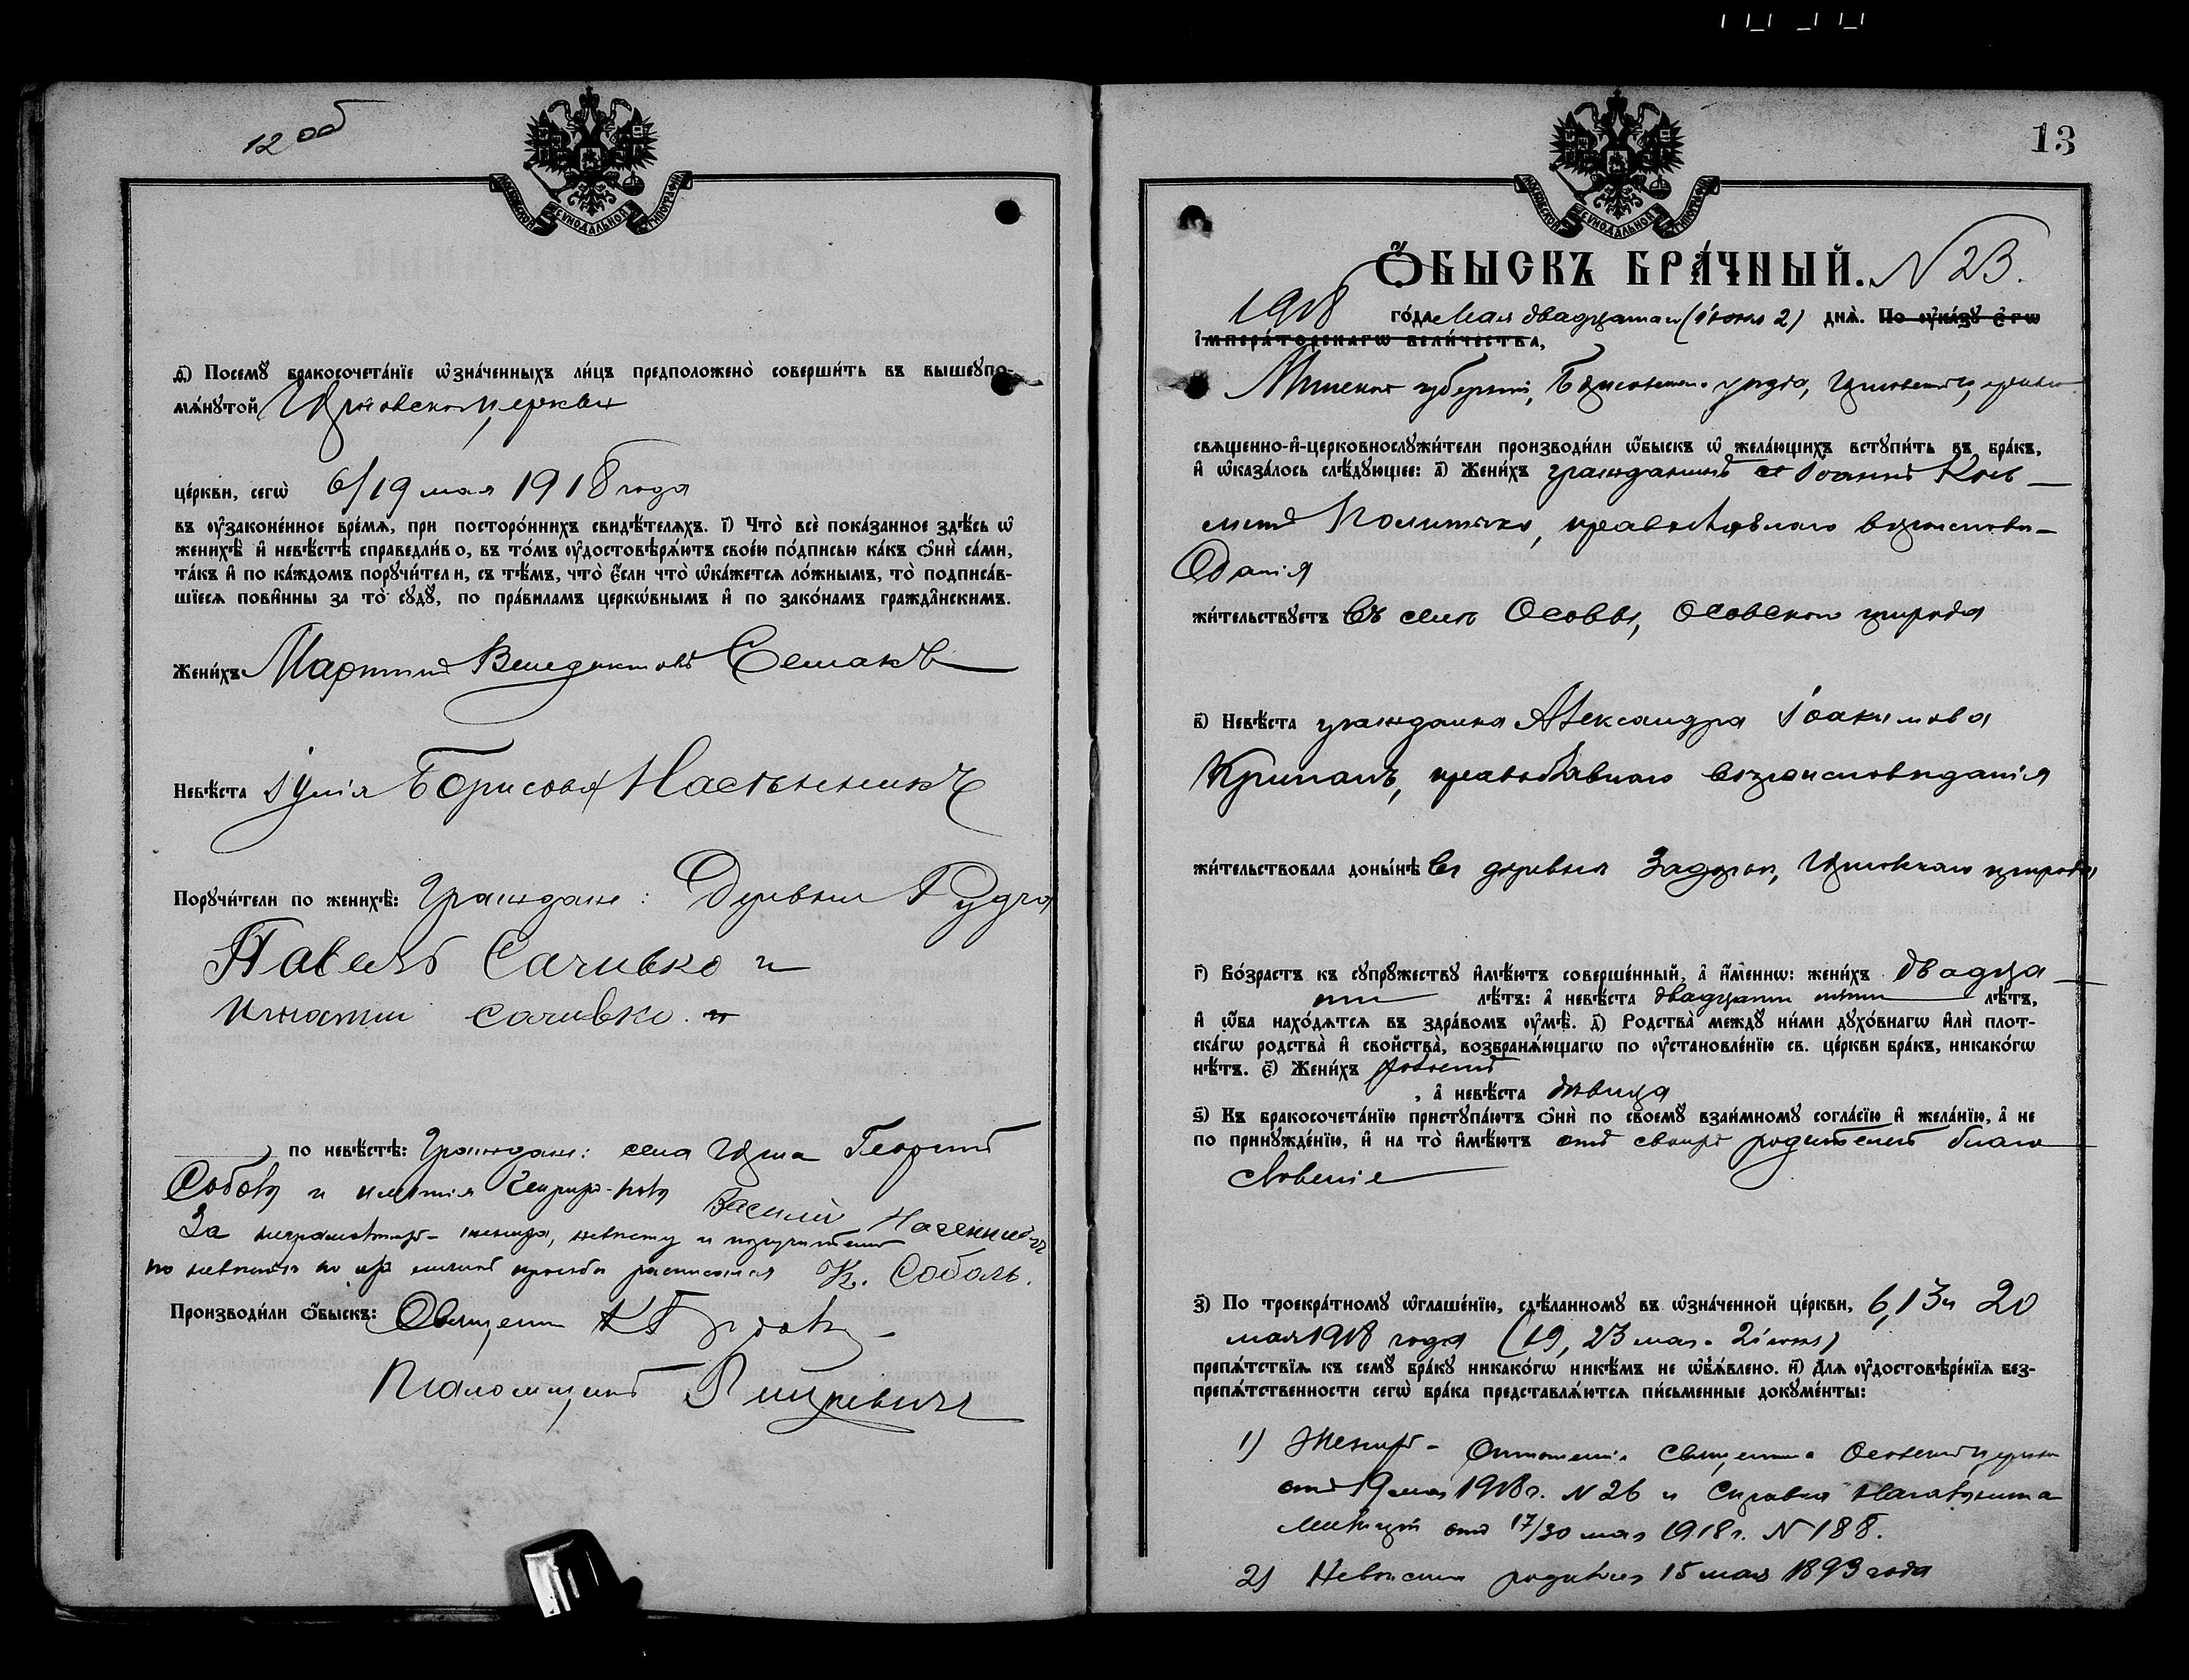 12 об
МОСКОВСКОЙ СѴНОДАЛЬНОЙ ТИПОГРАФІИ
д҃) Посемꙋ бракосочета́нїе ѡ҆зна́ченныхъ ли́цъ предположено̀ соверши́ть въ вышеꙋпо-
мѧ́нꙋтой церкви
це́ркви, сегѡ̀ 6/19 мая 1918 года
въ ᲂу҆законе́нное вре́мѧ, при посторо́ннихъ свидѣ́телѧхъ. і҃) Что̀ всѐ пока́занное здѣ́сь ѡ҆
женихѣ̀ и҆ невѣ́стѣ справедли́во, въ то́мъ ᲂу҆достовѣрѧ́ютъ свое́ю по́дписью ка́къ ѻ҆нѝ са́ми,
та́къ и҆ по ка́ждомъ порꙋчи́тели, съ тѣ́мъ, что̀ є҆́сли что̀ ѡ҆ка́жетсѧ ло́жнымъ, то̀ подписа́в-
шїесѧ пови́нны за то̀ сꙋдꙋ̀, по пра́виламъ церкѡ́внымъ и҆ по зако́намъ гражда́нскимъ.
Жени́хъ Мартинъ Венедиктовъ
Невѣ́ста Іулія Борисова
Порꙋчи́тели по женихѣ̀: Граждане: Деревни Рудня
Павелъ Сачивко и
Игнатий Сачивко
по невѣ́стѣ: Граждане: села Георгий
Соболь и имѣнія Василий
За неграмотныхъ жениха, невѣсту и поручителей
по невѣстѣ по ихъ личной просьбѣ расписался К. Соболь.
Производи́ли ѻ҆́быскъ: Священникъ
Псаломщикъ
13
МОСКОВСКОЙ СѴНОДАЛЬНОЙ ТИПОГРАФІИ
Ѻ҆́БЫСКЪ БРА́ЧНЫЙ. N 23.
1918 го́да Мая двадцатаго (іюня 2) днѧ̀. По ᲂу҆ка́зꙋ є҆гѡ̀
і҆мпера́торскагѡ вели́чества,
Минской губерніи, Борисовскаго уѣзда, церкви
свѧще́нно-и҆-церковнослꙋжи́тели производи́ли ѻ҆́быскъ ѡ҆ жела́ющихъ встꙋпи́ть въ бра́къ,
и҆ ѡ҆каза́лось слѣ́дꙋющее: а҃) Жени́хъ гражданинъ Іоаннъ
православнаго вѣроисповѣ-
данія
жи́тельствꙋетъ въ селѣ Осовы, Осовскаго прихода
в҃) Невѣ́ста гражданка Александра Іоакимова
православнаго вѣроисповѣданія
жи́тельствовала доны́нѣ въ деревнѣ прихода
г҃) Во́зрастъ къ сꙋпрꙋ́жествꙋ и҆мѣ́ютъ соверше́нный, а҆ и҆́меннѡ: жени́хъ двадца-
ти лѣ́тъ: а҆ невѣ́ста двадцати пяти лѣ́тъ,
и҆ ѻ҆́ба нахо́дѧтсѧ въ здра́вомъ ᲂу҆мѣ̀. д҃) Родства̀ междꙋ̀ ни́ми дꙋхо́внагѡ и҆лѝ плот-
ска́гѡ родства̀ и҆ сво́йства, возбранѧ́ющагѡ по ᲂу҆становле́нїю св. це́ркви бра́къ, никако́гѡ
нѣ́тъ. є҃) Жени́хъ холостъ
, а҆ невѣ́ста дѣвица
ѕ҃) Къ бракосочета́нїю пристꙋпа́ютъ ѻ҆нѝ по своемꙋ̀ взаи́мномꙋ согла́сїю и҆ жела́нїю, а҆ не
по принꙋжде́нїю, и҆ на то̀ и҆мѣ́ютъ отъ своихъ родителей благо
словеніе
з҃) По троекра́тномꙋ ѡ҆глаше́нїю, сдѣ́ланномꙋ въ ѡ҆зна́ченной це́ркви, 6, 13 и 20
мая 1918 года
препѧ́тствїѧ къ семꙋ̀ бра́кꙋ никако́гѡ никѣ́мъ не ѡ҆бъѧ́влено. и҃) Длѧ ᲂу҆достовѣре́нїѧ без-
препѧ́тственности сегѡ̀ бра́ка представлѧ́ютсѧ пи́сьменные докꙋме́нты:
1) Жениха - Отношеніе священника Осовской церкви
отъ 19 мая 1918 г. N 26 и Справка Начальника
Милиціи отъ 17/30 мая 1918 г. N 188.
2) Невѣста родилась 15 мая 1893 года